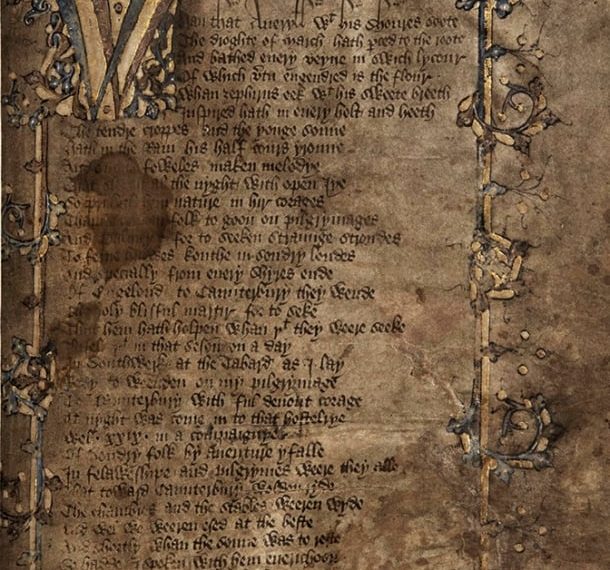 han that Aueryll wt his shoures soote
The droghte of march hath pced to the roote
And bathed euery veyne in swich lycour
Of which vtu engendred is the flour
Whan zephirus eek wt his sweete breeth
Inspired hath in euery holt and heeth
The tendre croppes and the yonge sonne
Hath in the Ram his half cours yronne
foweles maken melodye
al the nyght with open Iye
So nature in hir corages
folk to goon on pilgrymages
And for to seeken straunge strondes
To ferne kouthe in sondry londes
And specially from euery shyres ende
Of Engelond to Caunterbury they wende
The holy blisful martir for to seke
That hem hath holpen whan þt they weere seeke
Bifel þt in that seson on a day
In Southwerk at the Tabard as I lay
Redy to wenden on my pilgrymage
To Caunterbury with ful deuout corage
At nyght was come in to that hostelrye
Wel .xxix. in a compaignye
Of sondry folk by auenture yfalle
In felaweshipe and pilgrymes weere they alle
That toward Caunterbury wolden ryde
The chambres and the stables weeren wyde
And wel we weeren esed at the beste
And shortly whan the sonne was to reste
So hadde I spoken with hem euerichon